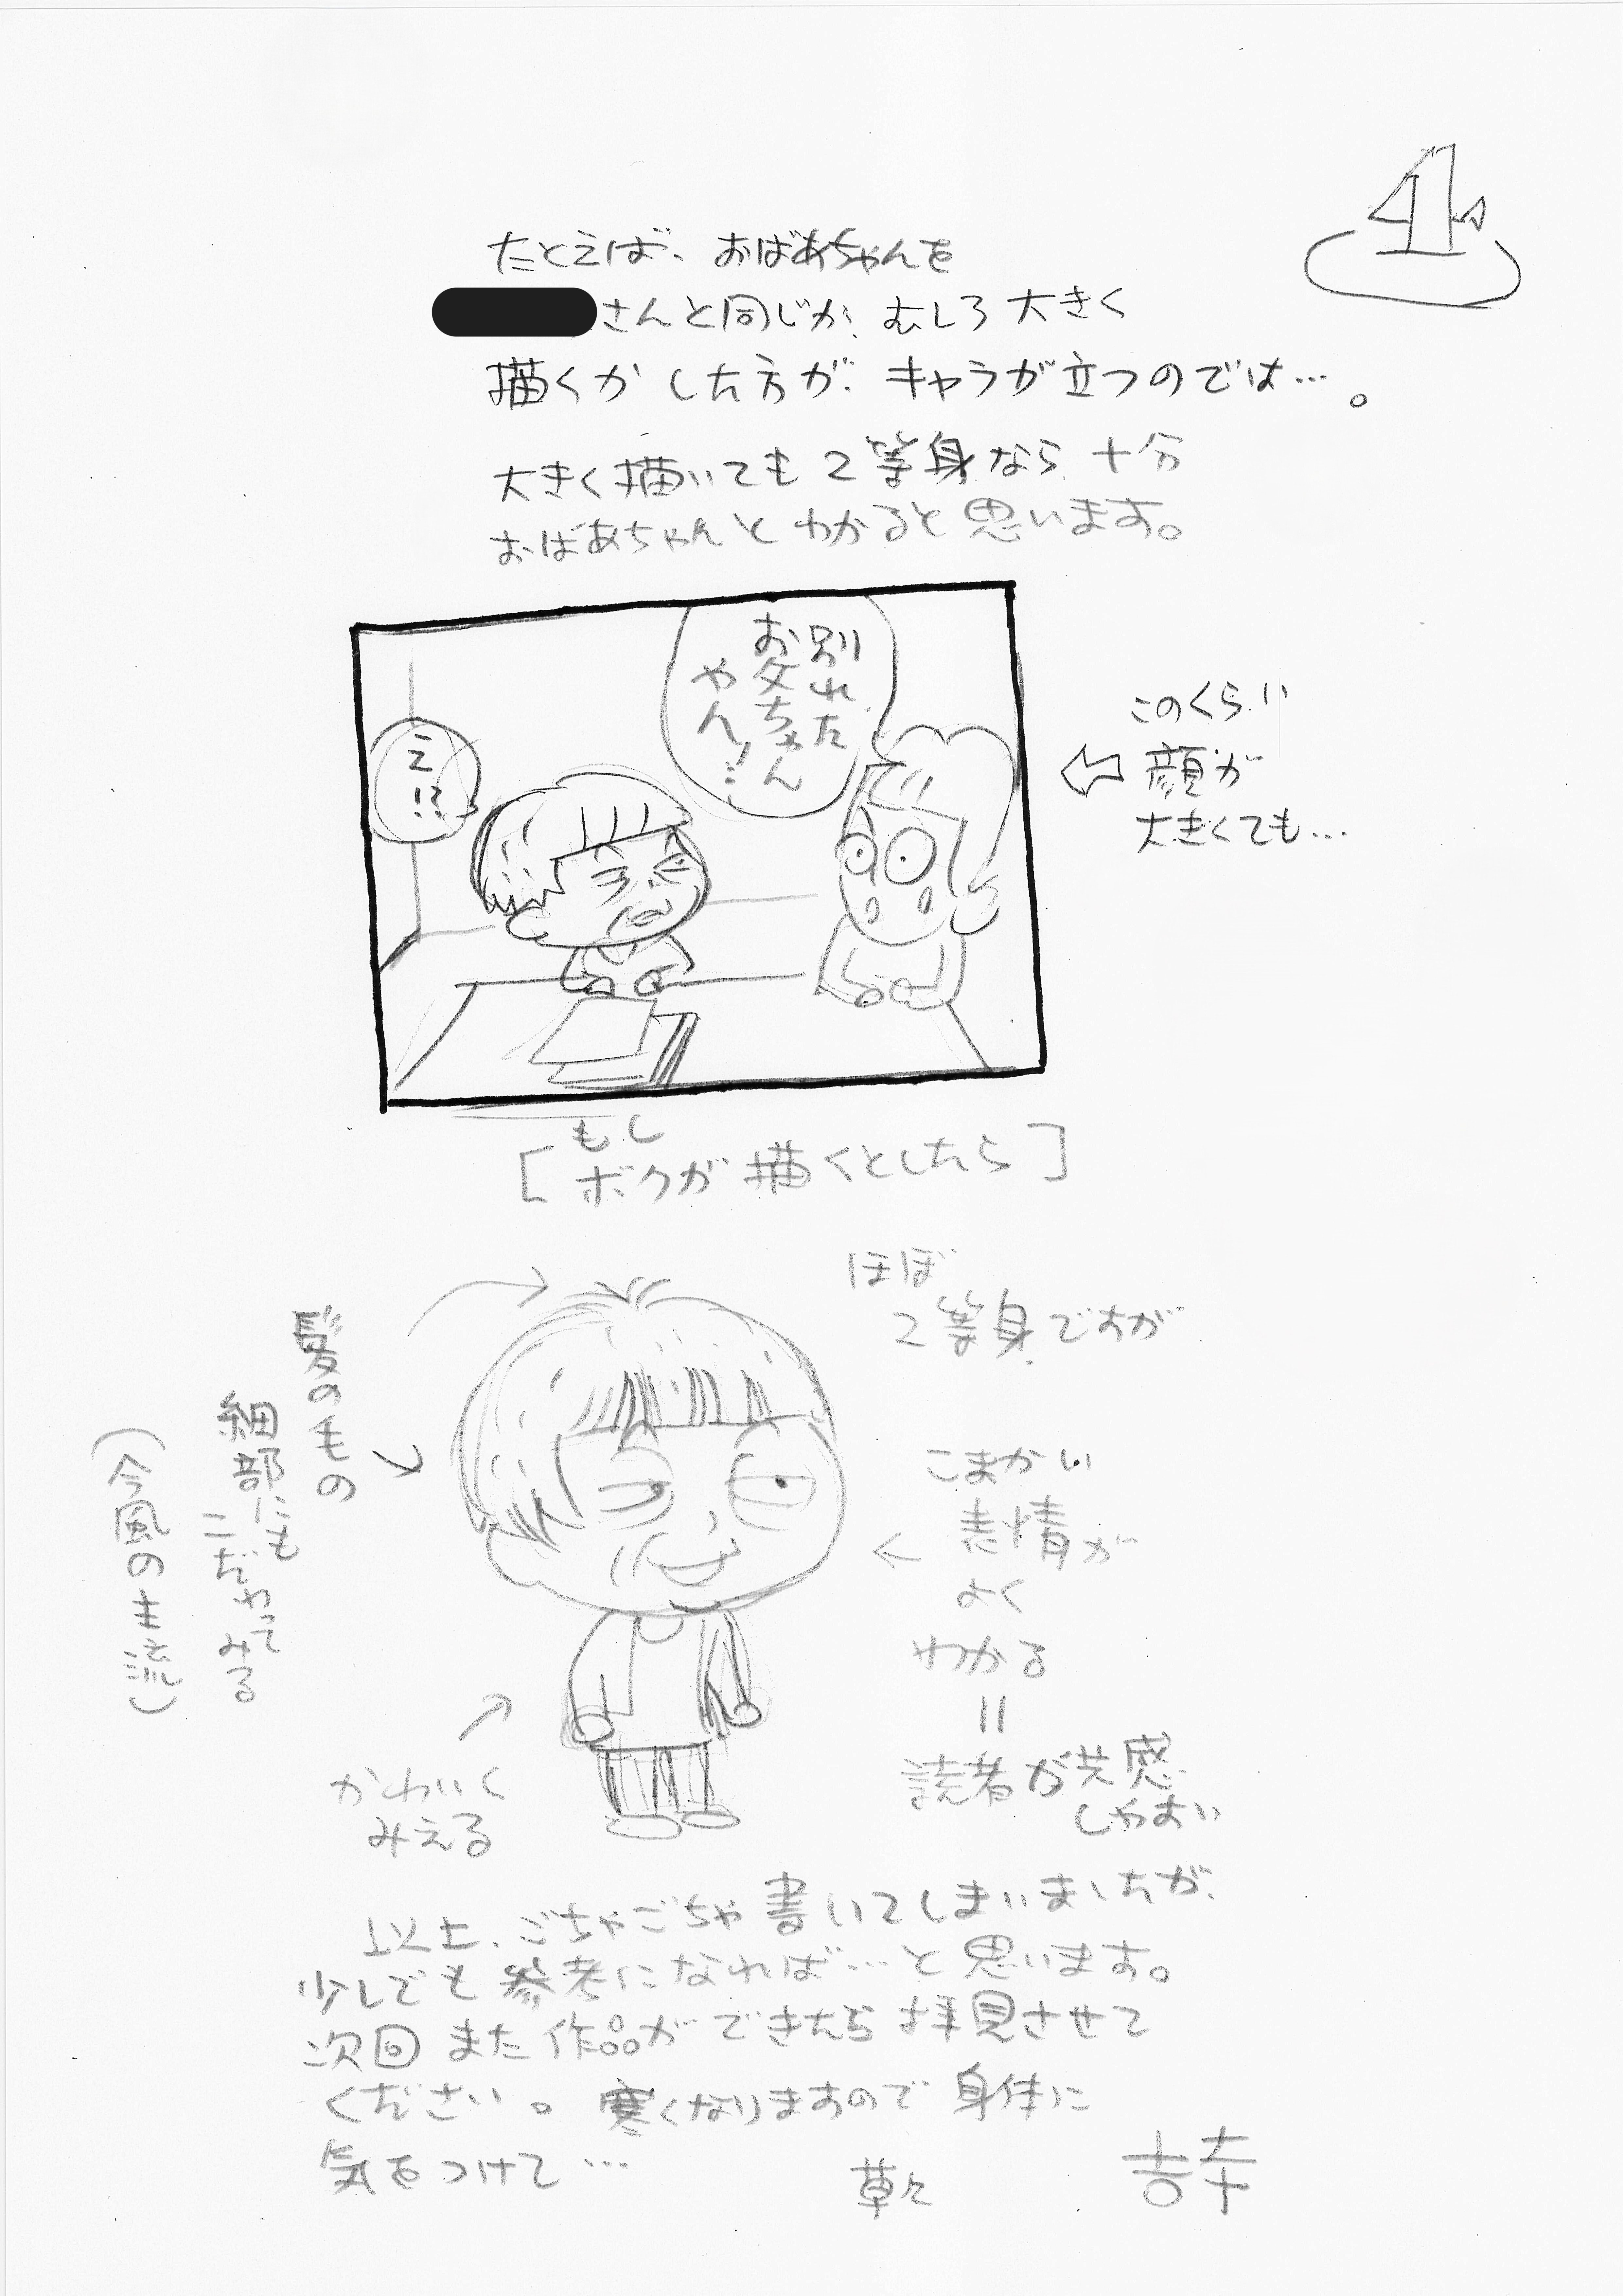 4
たとえば、おばあちゃんを
さんと同じか、むしろ大きく
描くかした方が、キャラが立つのでは…。
大きく描いても2等身なら十分
おばあちゃんとわかると思います。
別れた
お父ちゃん
やん!…
え!?
このくらい
顔が
大きくても…
もし
[ボクが描くとしたら]
ほぼ
2等身ですが
髪のもの
細部にも
こだわってみる
(今風の主流)
こまかい
表情が
よく
わかる
=
読者が共感
しやすい
かわいく
みえる
以上、ごちゃごちゃ書いてしまいましたが、
少しでも参考になれば…と思います。
次回また作品ができたら拝見させて
ください。寒くなりますので身体に
気をつけて…
草々